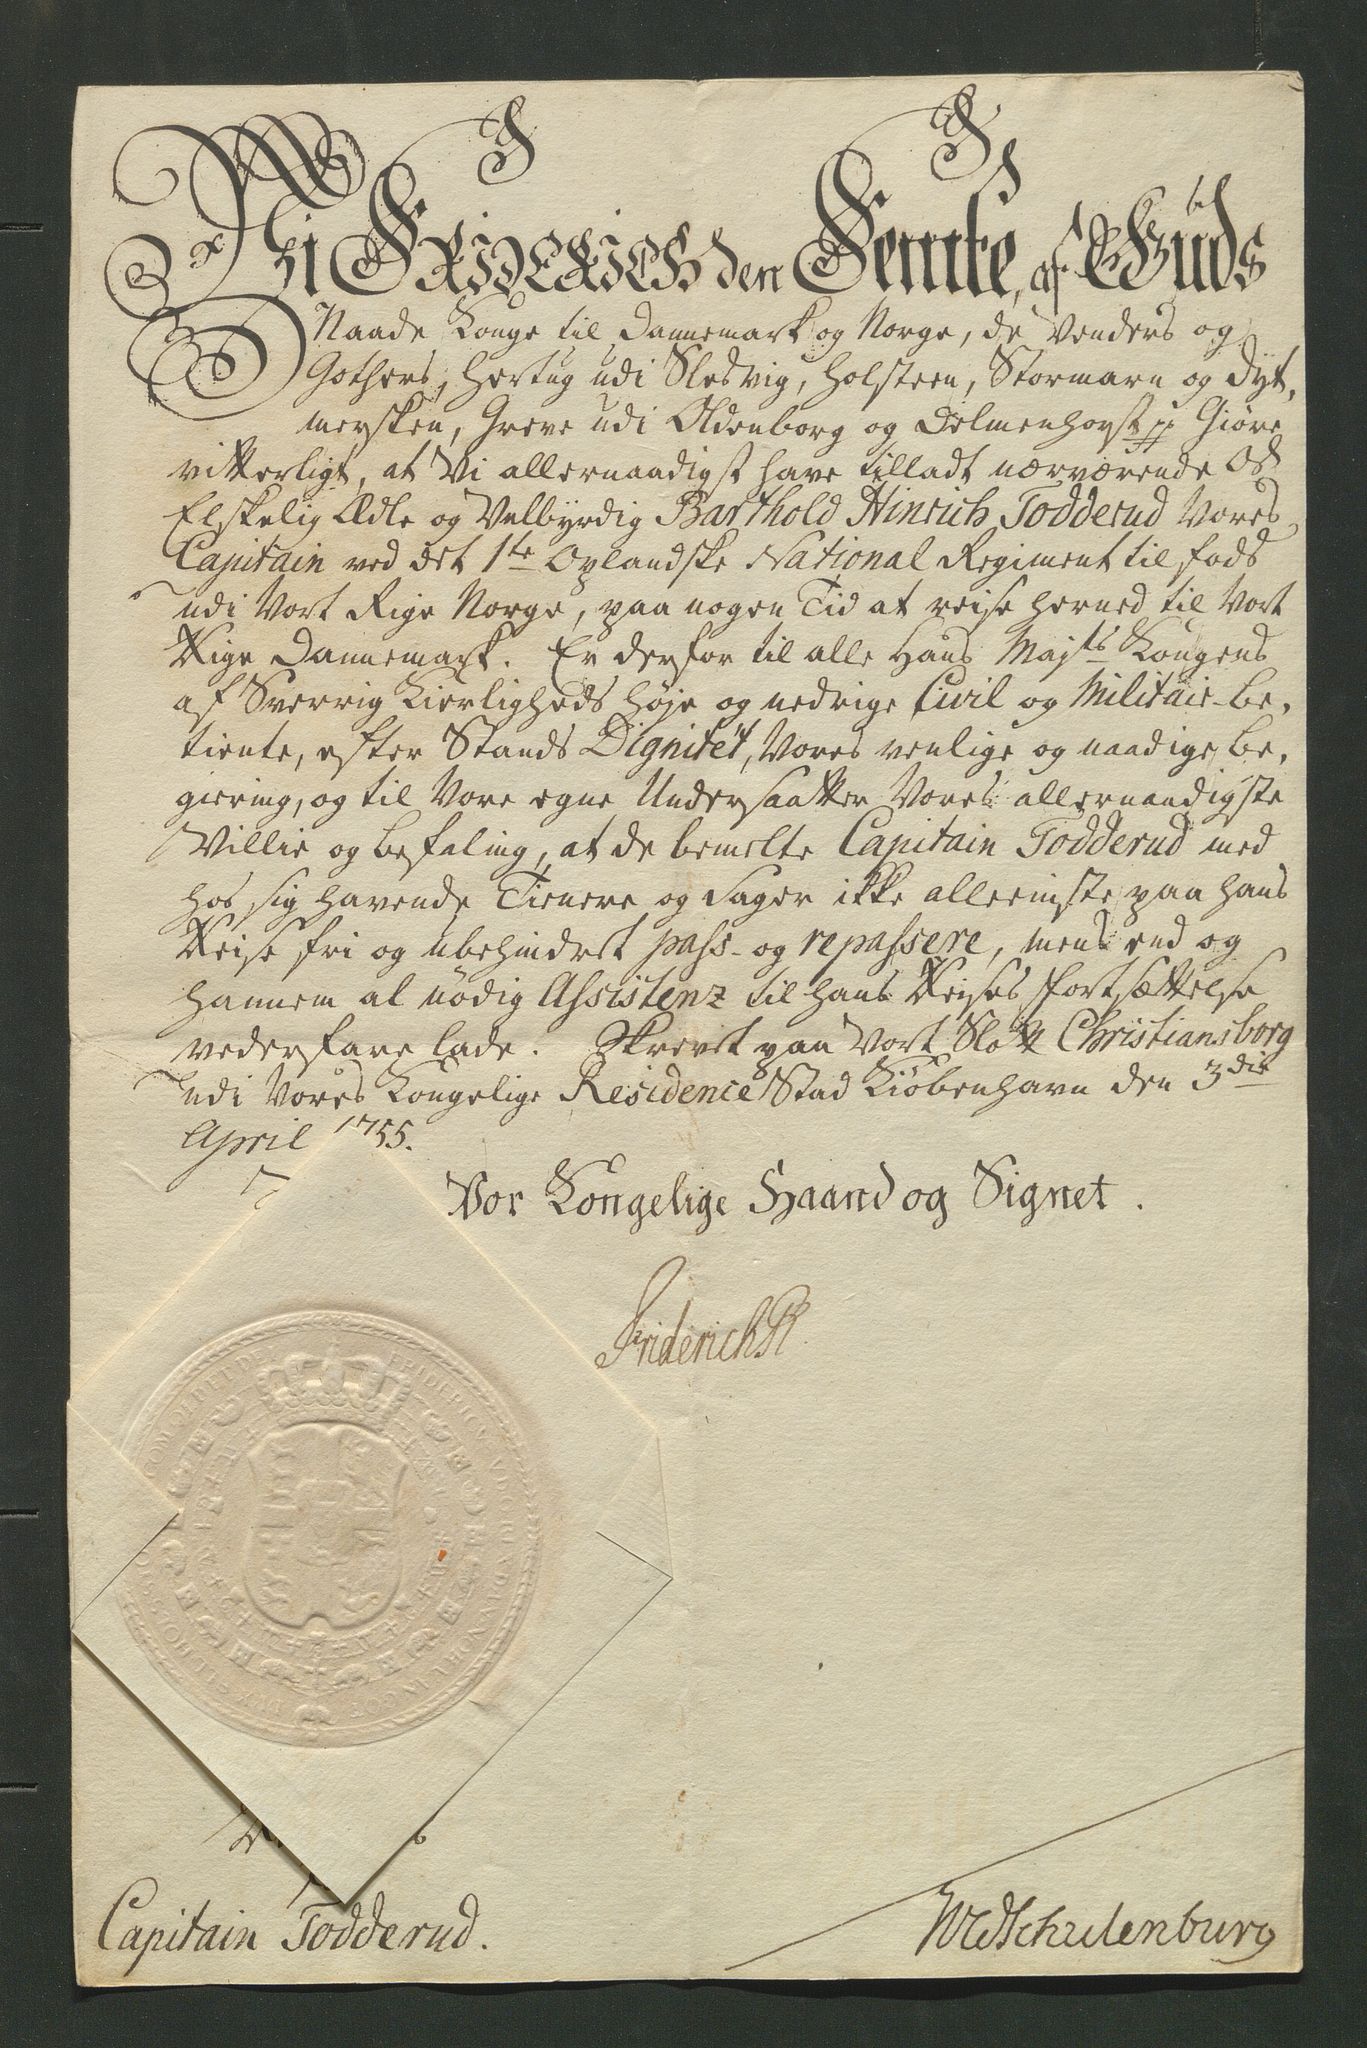 Vi FRIDERICH den Femte, af Guds
Naade Konge til Dannemark og Norge, de Venders og
Gothers, Hertug udi Slesvig, Holsteen, Stormarn og Dyt,
mersken, Greve udi Oldenborg og Delmenhorst pp Giøre
vitterligt, at Vi allernaadigst have tilladt nærværende Os
Elskelig Ædle og Velbyrdig Barthold Hinrich Todderud Vores
Capitain ved det 1te Oplandske National Regiment til fods
udi Vort Rige Norge, paa nogen Tid at reise herned til Vort
Rige Dannemark. Er derfor til alle Hans Majts Kongens
af Sverrig Kierligheds høje og nedrige Civil og Militair-be,
tiente, efter Stands Dignitet, Vores venlige og naadige be,
giering, og til Vore egne Undersaatter Vores allernaadigste
Villie og befaling, at de bemelte Capitain Todderud med
hos sig havende Tienere og Sager ikke alleeniste paa hans
Reise fri og ubehindret pass- og repassere, mens end og
hannem al nödig Assistenz til hans Reises fortsættelse
vederfare lade. Skrevet paa Vort Slott Christiansborg
udi Vores Kongelige Residence Stad Kiöbenhavn den 3die
April 1755.
Vor Kongelige Haand og Signet.
Friderich R
Capitain Todderud.
WCdSchulenburg